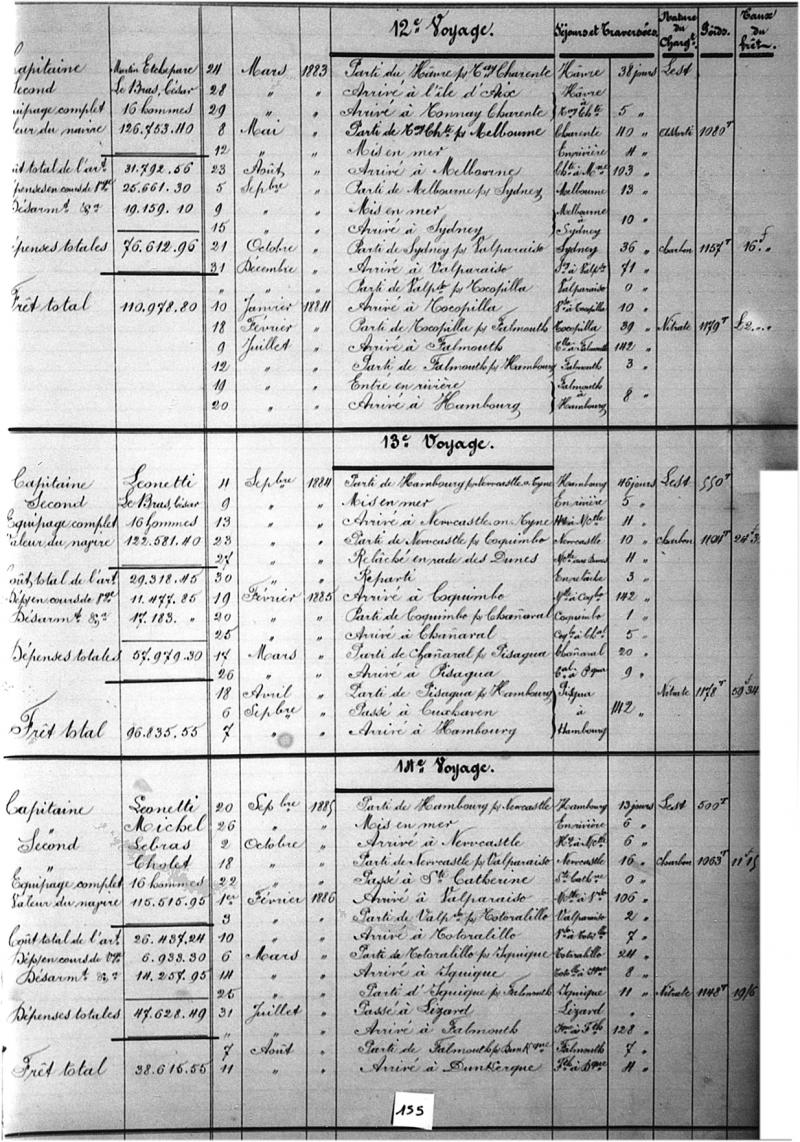 12e Voyage. Séjours et Traversées. Nature du Chargt. Poids. Taux du frêt.
Capitaine Martin Etchepare 24 Mars 1883 Parti du Hâvre pr Tay Charente Hâvre 38 jours Lest
Second Le Bras, César 28 " " Arrivé à l'île d'Aix Hâvre
Equipage complet 16 hommes 29 " " Arrivé à Tonnay Charente à Tay Chte 5 "
Valeur du navire 126.753.40 8 Mai " Parti de Tay Chte pr Melbourne Charente 40 " 1080T
12 " " Mis en mer En rivière 4 "
Coût total de l'art. 31.792.56 23 Août " Arrivé à Melbourne Chte à Mne 103 "
Dépenses en cours de Vge 25.661.30 5 Sepbre " Parti de Melbourne pr Sydney Melbourne 13 "
Désarmt &a 19.159.10 9 " " Mis en mer Melbourne
15 " " Arrivé à Sydney à Sydney 10 "
Dépenses totales 76.612.96 21 Octobre " Parti de Sydney pr Valparaiso Sydney 36 " Charbon 1157T 16f "
31 Décembre " Arrivé à Valparaiso Sy à Valpo 71 "
" " " Parti de Valpso pr Tocopilla Valparaiso 0 "
Frêt total 110.978.80 10 Janvier 1884 Arrivé à Tocopilla Vso à Tocopilla 10 "
18 Février " Parti de Tocopilla pr Falmouth Tocopilla 39 " Nitrate 1179T £2 " "
9 Juillet " Arrivé à Falmouth Tlla à Falmouth 142 "
12 " " Parti de Falmouth pr Hambourg Falmouth 3 "
19 " " Entré en rivière Falmouth
20 " " Arrivé à Hambourg à Hambourg 8 "
13e Voyage.
Capitaine Leonetti 4 Sepbre 1884 Parti de Hambourg pr Newcastle o. Tyne Hambourg 46 jours Lest 550T
Second Le Bras, César 9 " " Mis en mer En rivière 5 "
Equipage complet 16 hommes 13 " " Arrivé à Newcastle on Tyne Hg à Nctle 4 "
Valeur du navire 122.581.40 23 " " Parti de Newcastle pr Coquimbo Newcastle 10 " Charbon 1101T 24f3
27 " " Relâché en rade des Dunes Nctle aux Dunes 4 "
Coût total de l'art. 29.318.45 30 " " Reparti En relâche 3 "
Dép. en cours de Vge 11.477.85 19 Février 1885 Arrivé à Coquimbo Nctle à Coqbo 142 "
Désarmt &a 17.183. " 20 " " Parti de Coquimbo pr Chañaral Coquimbo 1 "
25 " " Arrivé à Chañaral Coqbo à Chal 5 "
Dépenses totales 57.979.30 17 Mars " Parti de Chañaral pr Pisagua Chañaral 20 "
26 " " Arrivé à Pisagua Cal à Pgua 9 "
18 Avril " Parti de Pisagua pr Hambourg Pisgua Nitrate 1178T 59f34
6 Sepbre " Passé à Cuxhaven à 142 "
Frêt total 96.835.55 7 " " Arrivé à Hambourg Hambourg
14e Voyage.
Capitaine Leonetti 20 Sepbre 1885 Parti de Hambourg pr Newcastle Hambourg 13 jours Lest 500T
" Michel 26 " " Mis en mer En rivière 6 "
Second Lebras 2 Octobre " Arrivé à Newcastle Hg à Nctle 6 "
" Cholet 18 " " Parti de Newcastle pr Valparaiso Newcastle 16 " Charbon 1063T 11f15
Equipage complet 16 hommes 22 " " Passé à Ste Catherine Ste Cathne 0 "
Valeur du navire 115.515.95 1er Février 1886 Arrivé à Valparaiso Nctle à Vso 106 "
3 " " Parti de Valpso pr Totoralillo Valparaiso 2 "
Coût total de l'art. 26.437.24 10 " " Arrivé à Totoralillo Vso à Totollo 7 "
Dép. en cours de Vge 6.933.30 6 Mars " Parti de Totoralillo pr Iquique Totoralillo 24 "
Désarmt &a 14.257.95 14 " " Arrivé à Iquique Totollo àIque 8 "
25 " " Parti d'Iquique pr Falmouth Iquique 11 " Nitrate 1148T 19/6
Dépenses totales 47.628.49 31 Juillet " Passé à Lizard Lizard "
" " " Arrivé à Falmouth Ique à Fth 128 "
7 Août " Parti de Falmouth pr Dunkque Falmouth 7 "
Frêt total 38.615.55 11 " " Arrivé à Dunkerque Fth à Dque 4 "
135